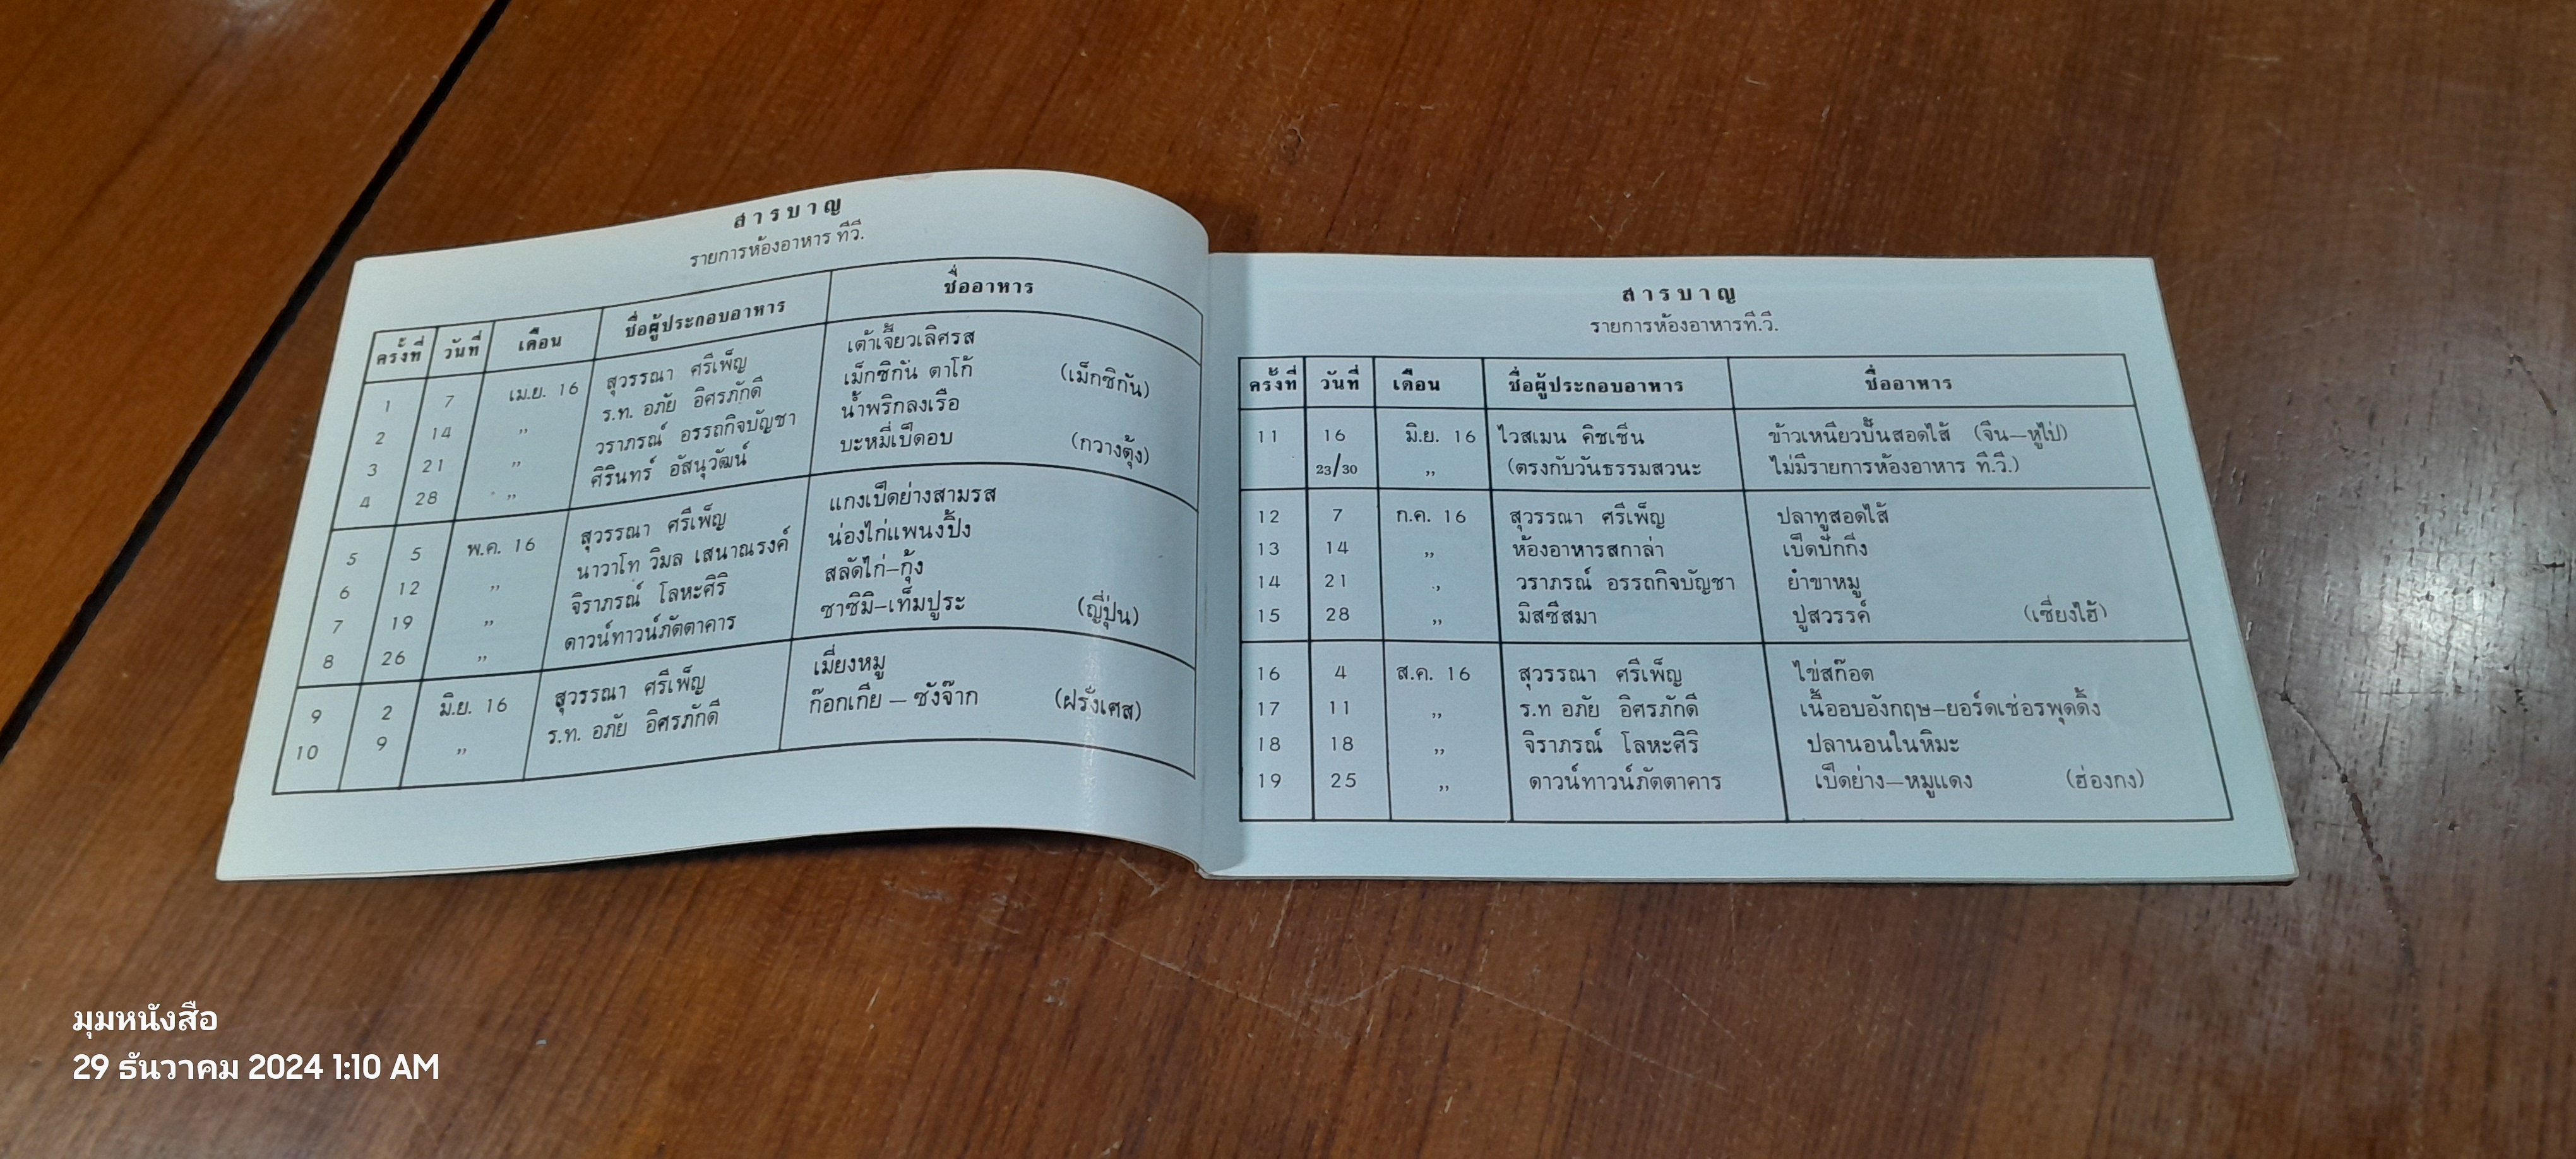 สารบาญ
รายการห้องอาหาร ทีวี.
ครั้งที่ วันที่ เดือน ชื่อผู้ประกอบอาหาร ชื่ออาหาร
1 7 เม.ย. 16 สุวรรณา ศรีเพ็ญ เต้าเจี้ยวเลิศรส
2 14 ,, ร.ท. อภัย อิศรภักดี เม็กซิกัน ตาโก้ (เม็กซิกัน)
3 21 ,, วราภรณ์ อรรถกิจบัญชา น้ำพริกลงเรือ
4 28 ,, ศิรินทร์ อัสนุวัฒน์ บะหมี่เป็ดอบ (กวางตุ้ง)
5 5 พ.ค. 16 สุวรรณา ศรีเพ็ญ แกงเป็ดย่างสามรส
6 12 ,, นาวาโท วิมล เสนาณรงค์ น่องไก่แพนงปิ้ง
7 19 ,, จิราภรณ์ โลหะศิริ สลัดไก่-กุ้ง
8 26 ,, ดาวน์ทาวน์ภัตตาคาร ซาซิมิ-เท็มปูระ (ญี่ปุ่น)
9 2 มิ.ย. 16 สุวรรณา ศรีเพ็ญ เมี่ยงหมู
10 9 ,, ร.ท. อภัย อิศรภักดี ก๊อกเกีย – ซังจ๊าก (ฝรั่งเศส)
สารบาญ
รายการห้องอาหารที.วี.
ครั้งที่ วันที่ เดือน ชื่อผู้ประกอบอาหาร ชื่ออาหาร
11 16 มิ.ย. 16 ไวสเมน คิชเช็น ข้าวเหนียวปั้นสอดไส้ (จีน-หูไป๋)
23/30 ,, (ตรงกับวันธรรมสวนะ ไม่มีรายการห้องอาหาร ที.วี.)
12 7 ก.ค. 16 สุวรรณา ศรีเพ็ญ ปลาทูสอดไส้
13 14 ,, ห้องอาหารสกาล่า เป็ดปักกิ่ง
14 21 ., วราภรณ์ อรรถกิจบัญชา ยำขาหมู
15 28 ,, มิสซีสมา ปูสวรรค์ (เซี่ยงไฮ้)
16 4 ส.ค. 16 สุวรรณา ศรีเพ็ญ ไข่สก๊อต
17 11 ,, ร.ท อภัย อิศรภักดี เนื้ออบอังกฤษ-ยอร์ดเช่อรพุดดิ้ง
18 18 ,, จิราภรณ์ โลหะศิริ ปลานอนในหิมะ
19 25 ,, ดาวน์ทาวน์ภัตตาคาร เป็ดย่าง-หมูแดง (ฮ่องกง)
มุมหนังสือ
29 ธันวาคม 2024 1:10 AM